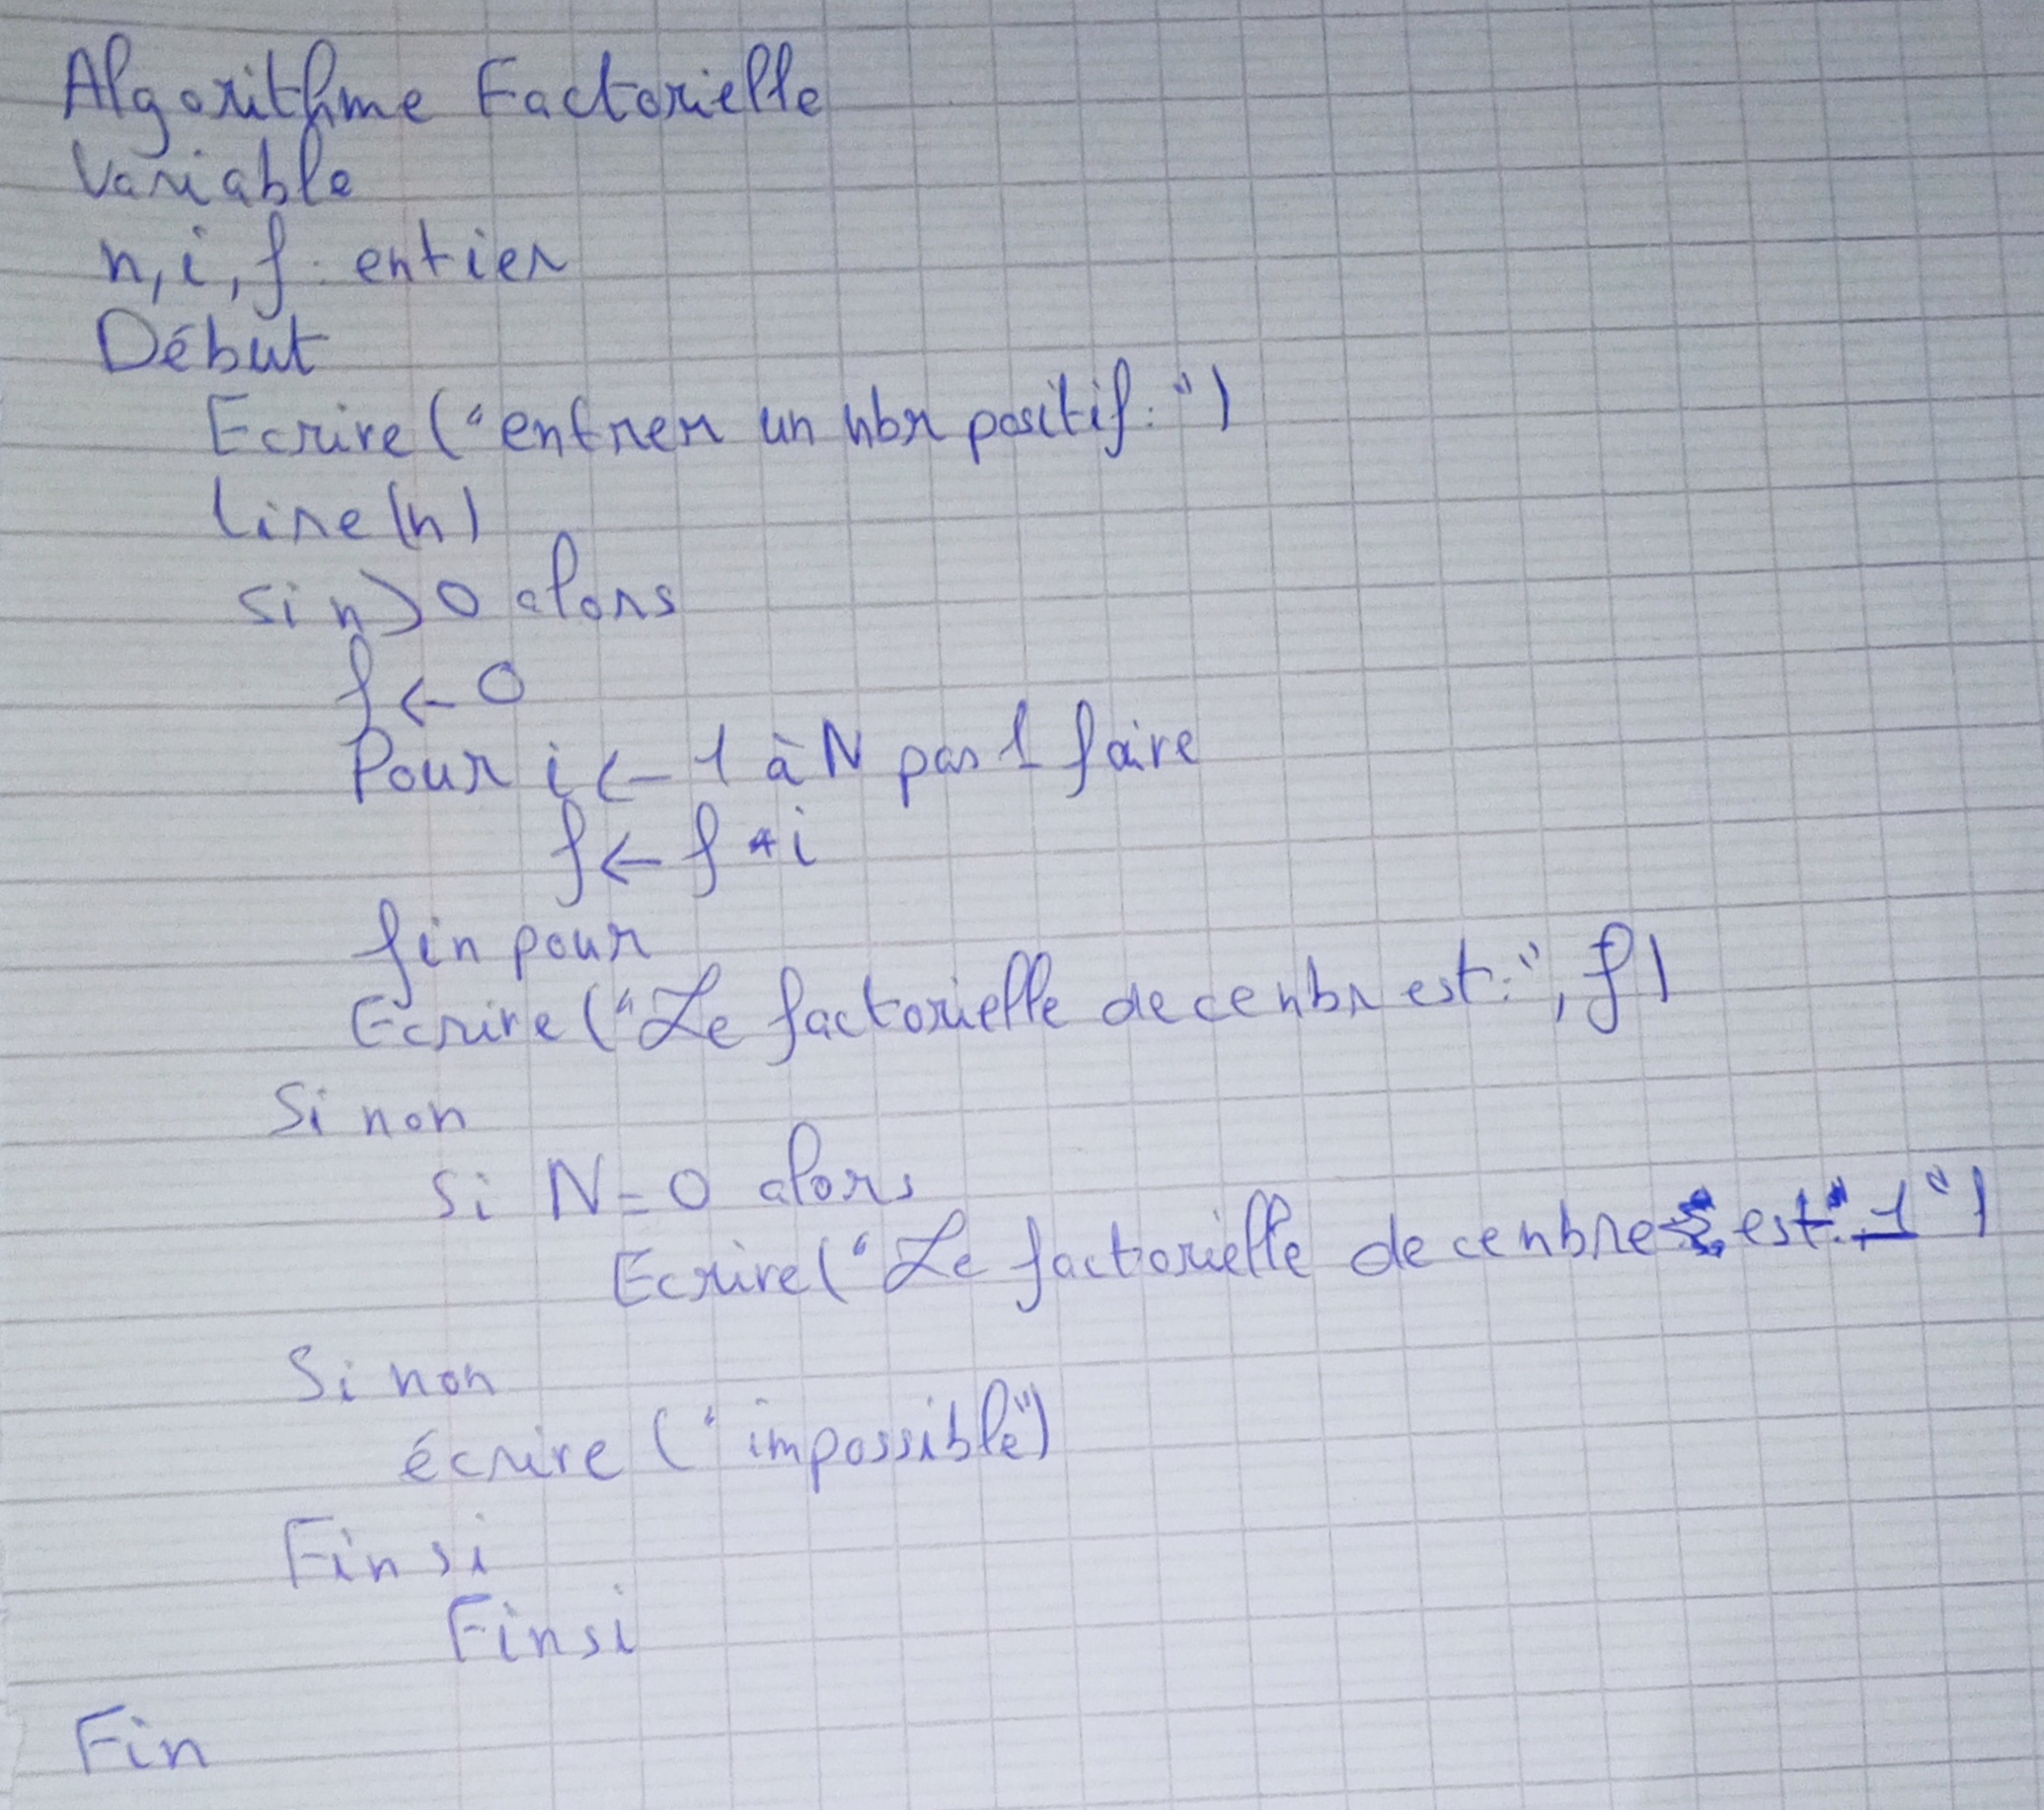 Algorithme Factorielle
Variable
n, i, f : entier
Début
Ecrire ("entrer un nbr positif : ")
lire (n)
si n > 0 alors
f ← 0
Pour i ← 1 à N pas 1 faire
f ← f * i
fin pour
Ecrire ("Le factorielle de ce nbr est : ", f)
Si non
si N = 0 alors
Ecrire ("Le factorielle de ce nbre est : 1")
Si non
écrire ("impossible")
Fin si
Fin si
Fin